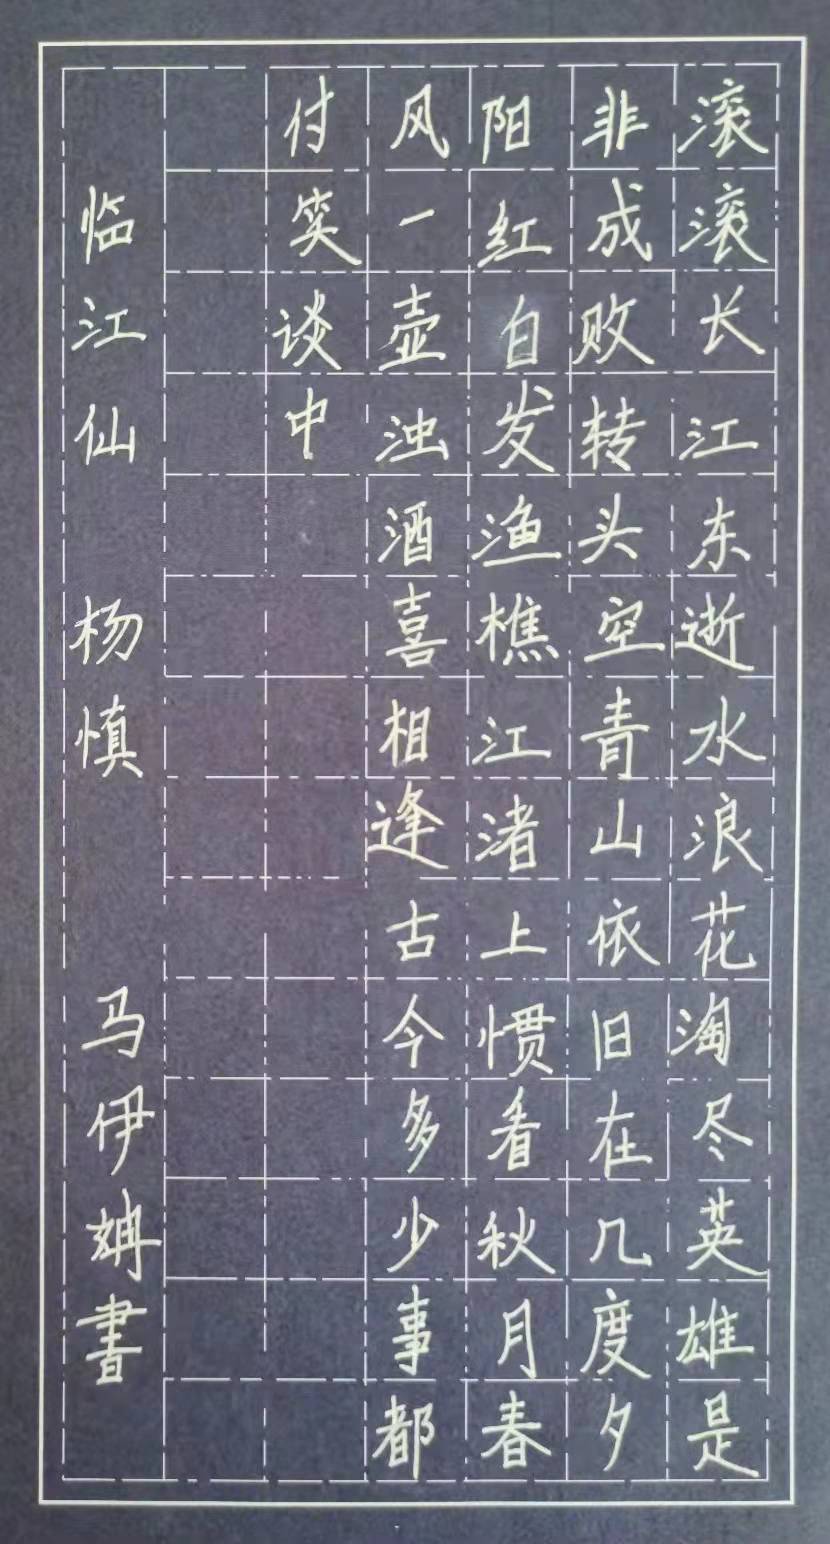 滚滚长江东逝水浪花淘尽英雄是
非成败转头空青山依旧在几度夕
阳红白发渔樵江渚上惯看秋月春
风一壶浊酒喜相逢古今多少事都
付笑谈中
临江仙 杨慎 马伊書